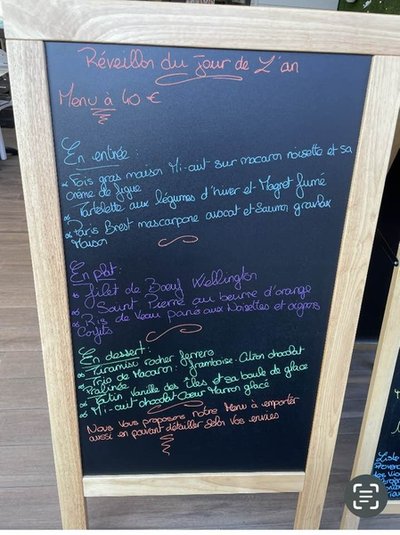 Réveillon du jour de L'an
Menu à 40 €
En entrée :
Fois gras maison Mi-cuit sur macaron noisette et sa
crème de figue
Tartelette aux légumes d'hiver et Magret fumé
Paris Brest mascarpone avocat et Saumon gravlax
Maison
En plat :
filet de Bœuf Wellington
Saint Pierre au beurre d'orange
Ris de Veau panés aux Noisettes et oignons
Confits
En dessert :
Tiramisu rocher ferrero
Trio de Macaron : framboise - Citron chocolat
Praliné
Tatin Vanille des îles et sa boule de glace
Mi-cuit chocolat Cœur Marron glacé
Nous vous proposons notre Menu à emporter
aussi en pouvant détailler selon vos envies
Liste